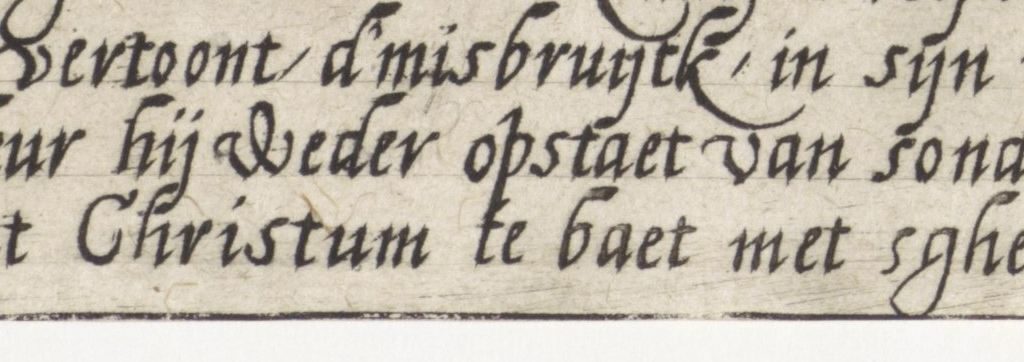 vertoont / d'misbruijtk, in sijn
eur hij weder opstaet van sond
t Christum te baet met sghe